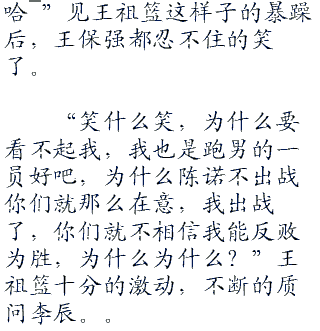 哈”见王祖篮这样子的暴躁
后，王保强都忍不住的笑
了。
“笑什么笑，为什么要
看不起我，我也是跑男的一
员好吧，为什么陈诺不出战
你们就那么在意，我出战
了，你们就不相信我能反败
为胜，为什么为什么？”王
祖篮十分的激动，不断的质
问李辰。。